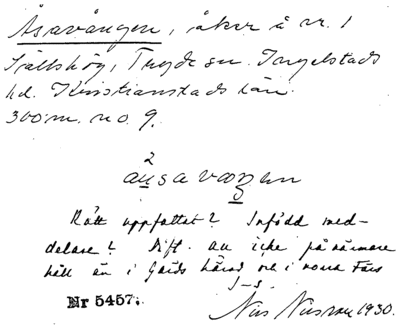 Åsavången, åker å nr. 1
Fjällshög, Tryde sn. Ingelstads
hd. Kristianstads län.
300 m. no. 9.
2
ausavaŋen
Rätt uppfattat? Infödd med-
delare? Dift. au icke på närmare
håll än i Gärds härad och i norra Färs
J-s.
Nr 5457.
Nils Nilsson 1930.